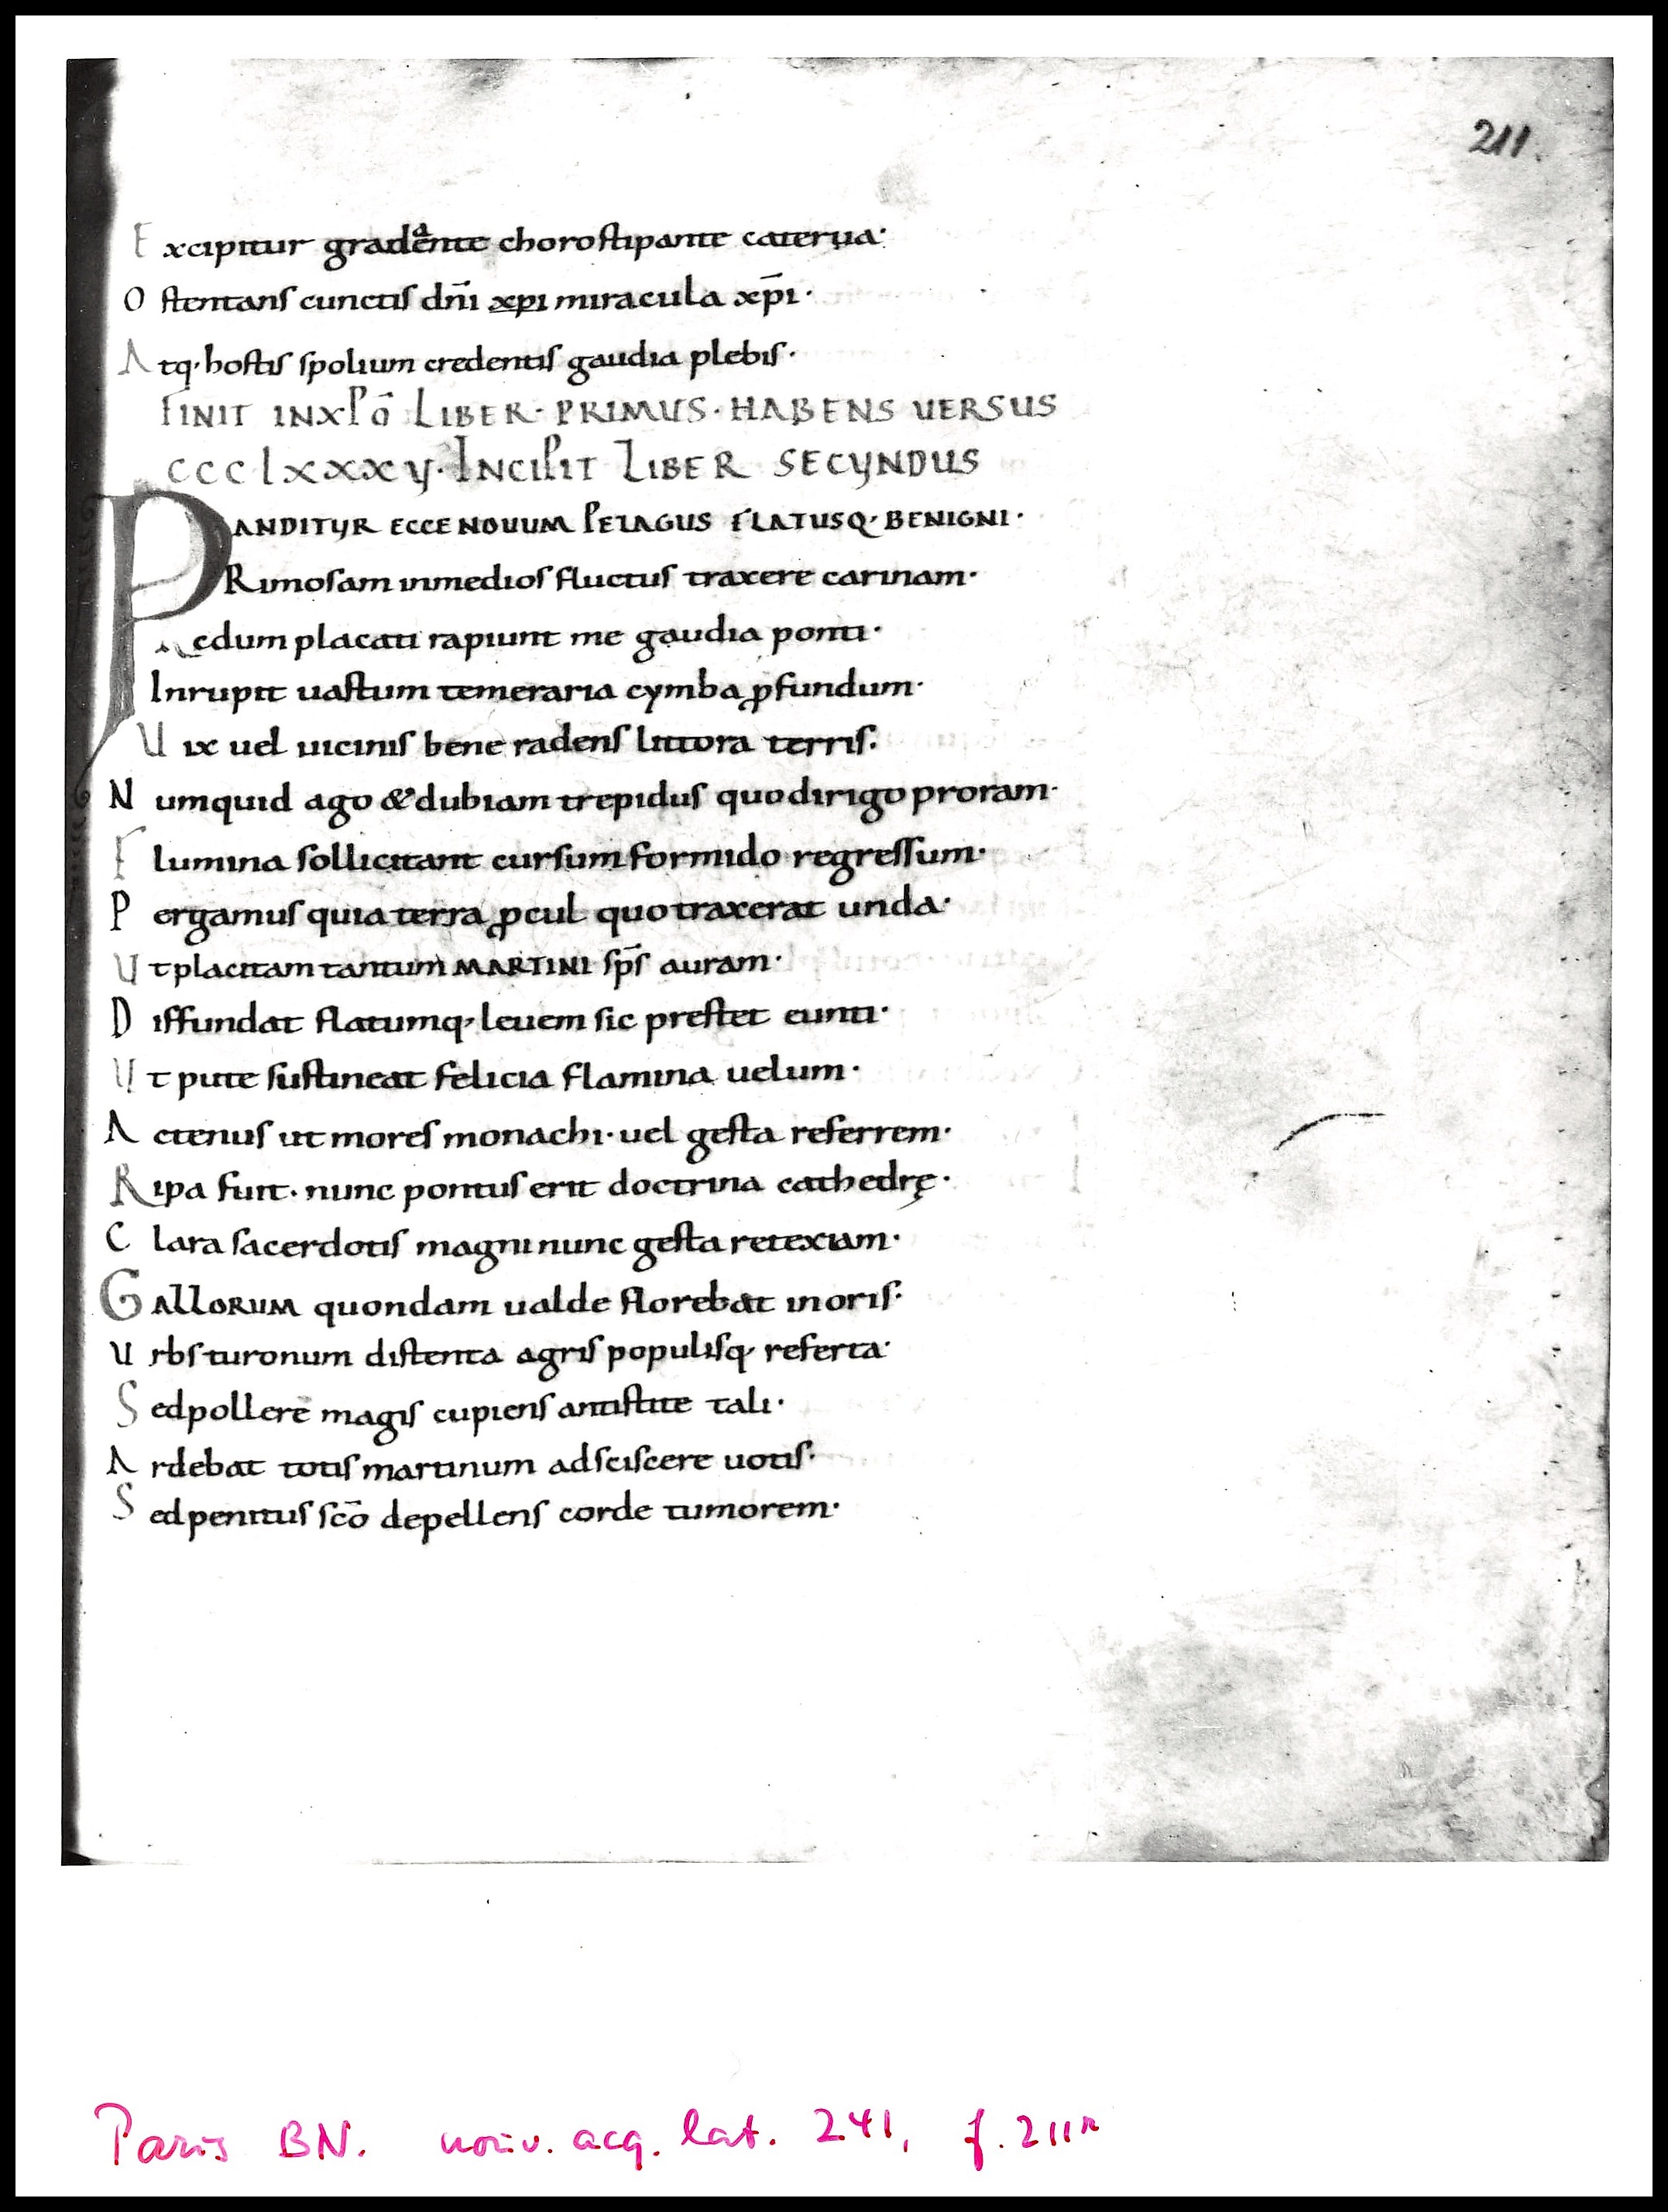 211.
Excipitur gradaente choro stipante caterua·
Ostentans cunctis dn̄i xpi miracula xp̄i·
Atq· hostis spolium credentis gaudia plebis·
FINIT IN XPō LIBER· PRIMUS· HABENS UERSUS
CCCLXXXV· INCIPIT LIBER SECUNDUS
PANDITUR ECCE NOUUM PELAGUS FLATUSQ· BENIGNI·
Rimosam inmedios fluctus traxere carinam·
edum placati rapiunt me gaudia ponti·
Inrupit uastum temeraria cymba ꝓfundum·
Uix uel uicinis bene radens littora terris·
Numquid ago & dubiam trepidus quo dirigo proram·
Flumina sollicitant cursum formido regressum·
Pergamus quia terra ꝓcul quo traxerat unda·
Ut placitam tantum MARTINI sp̄s auram·
Diffundat flatumq· leuem sic prestet eunti·
Ut pute sustineat felicia flamina uelum·
Actenus ut mores monachi· uel gesta referrem·
Ripa fuit· nunc pontus erit doctrina cathedrę·
Clara sacerdotis magni nunc gesta retexiam·
GALLORUM quondam ualde florebat inoris·
Urbs turonum distenta agris populisq· referta·
Sed pollere magis cupiens antistite tali·
Ardebat totis martinum adsciscere uotis·
Sed penitus sc̄o depellens corde tumorem·
Paris BN. nouv. acq. lat. 241, f. 211r